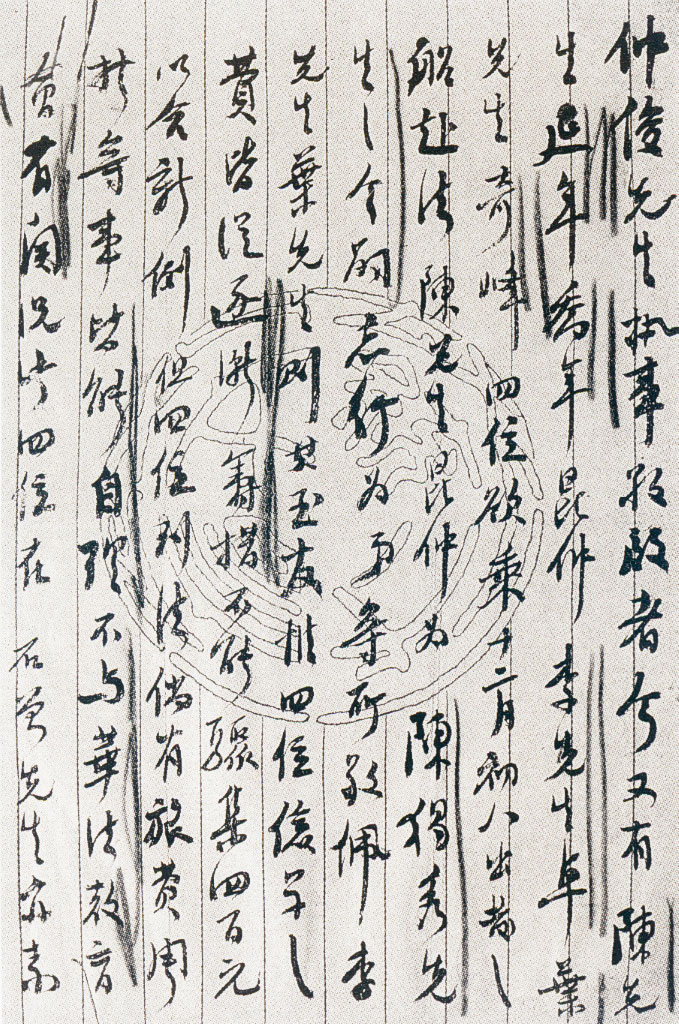 仲俊先生執事敬啟者今又有 陳先
生延年喬年昆仲 李先生卓 葉
先生奇峰 四位欲乘十二月初八出發之
船赴法 陳先生昆仲為 陳獨秀先
生之令嗣志行為弟等所敬佩李
先生葉先生則其至友挂四位儉學之
費皆從逐漸籌措不能驟集四百元
以合新例 但四位到法倘有旅費周
折等事皆能自理不与華法教育
會有関況此四位在 石曾先生亦素